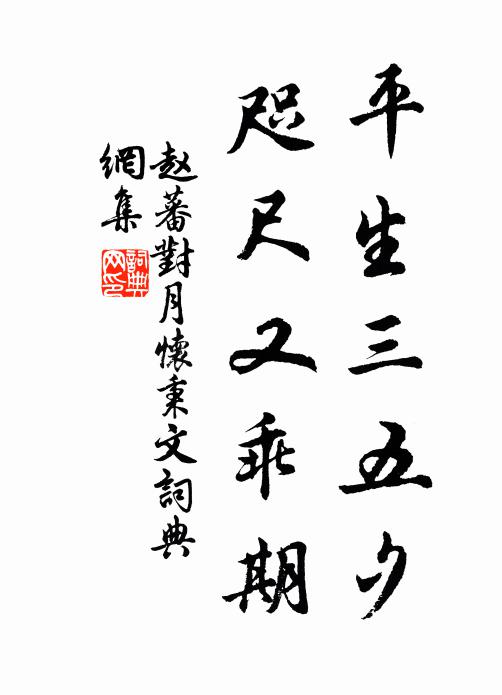 平生三五夕
咫尺又乖期
赵蕃對月懷秉文詞典
網集
詞典網印